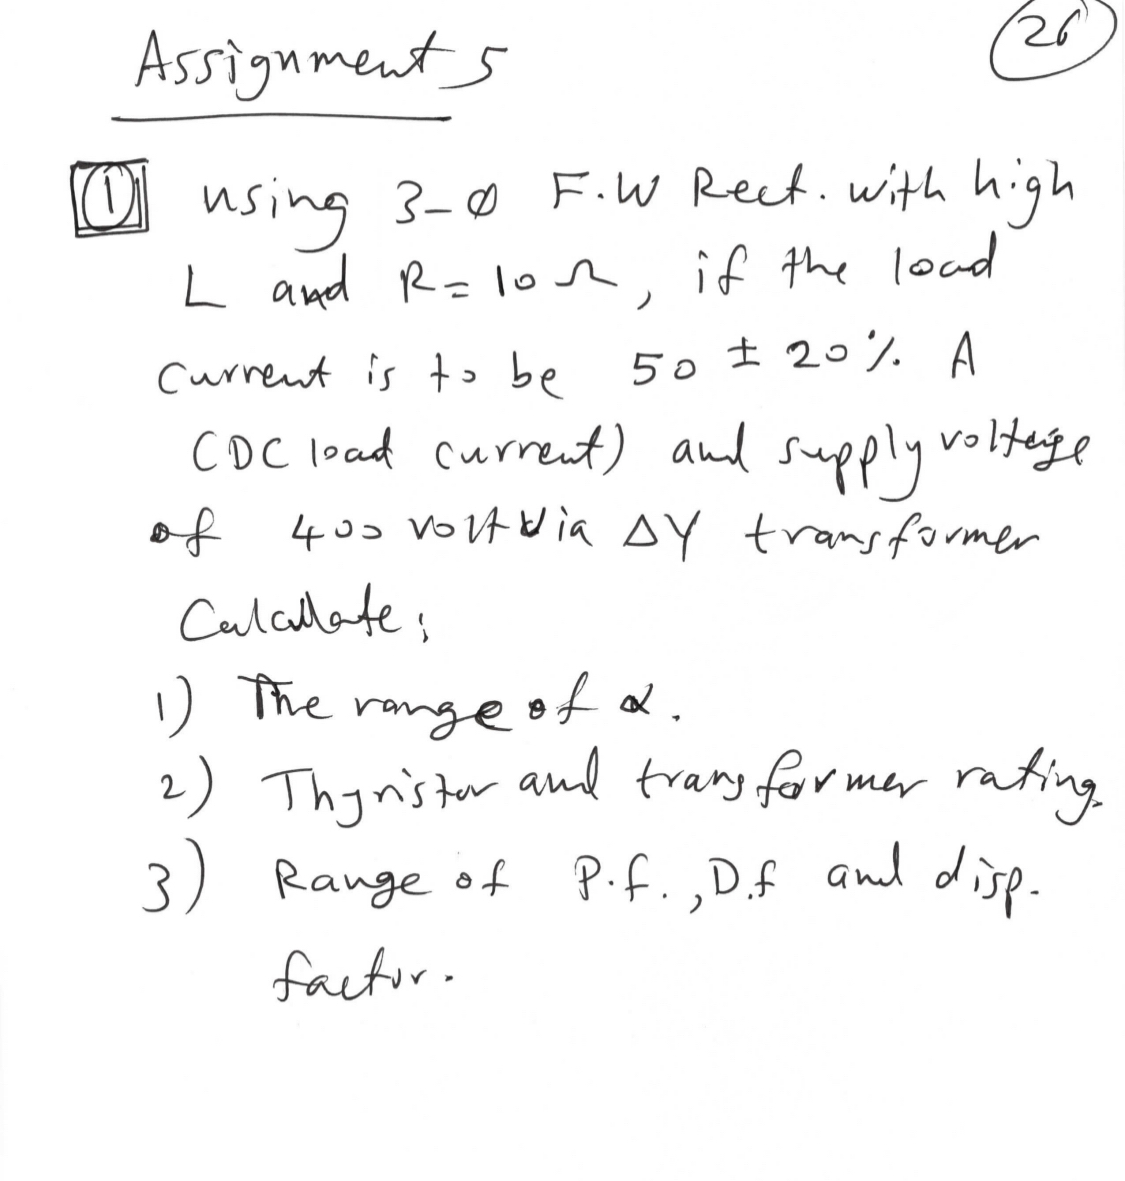 26
Assignment 5
1 using 3-Ø F.W Rect. with high
L and R=10Ω, if the load
current is to be 50 ± 20% A
(DC load current) and supply voltage
of 400 volt via ΔY transformer
Calculate;
1) The range of α.
2) Thyristor and transformer rating.
3) Range of P.f., D.f and disp.
factor.